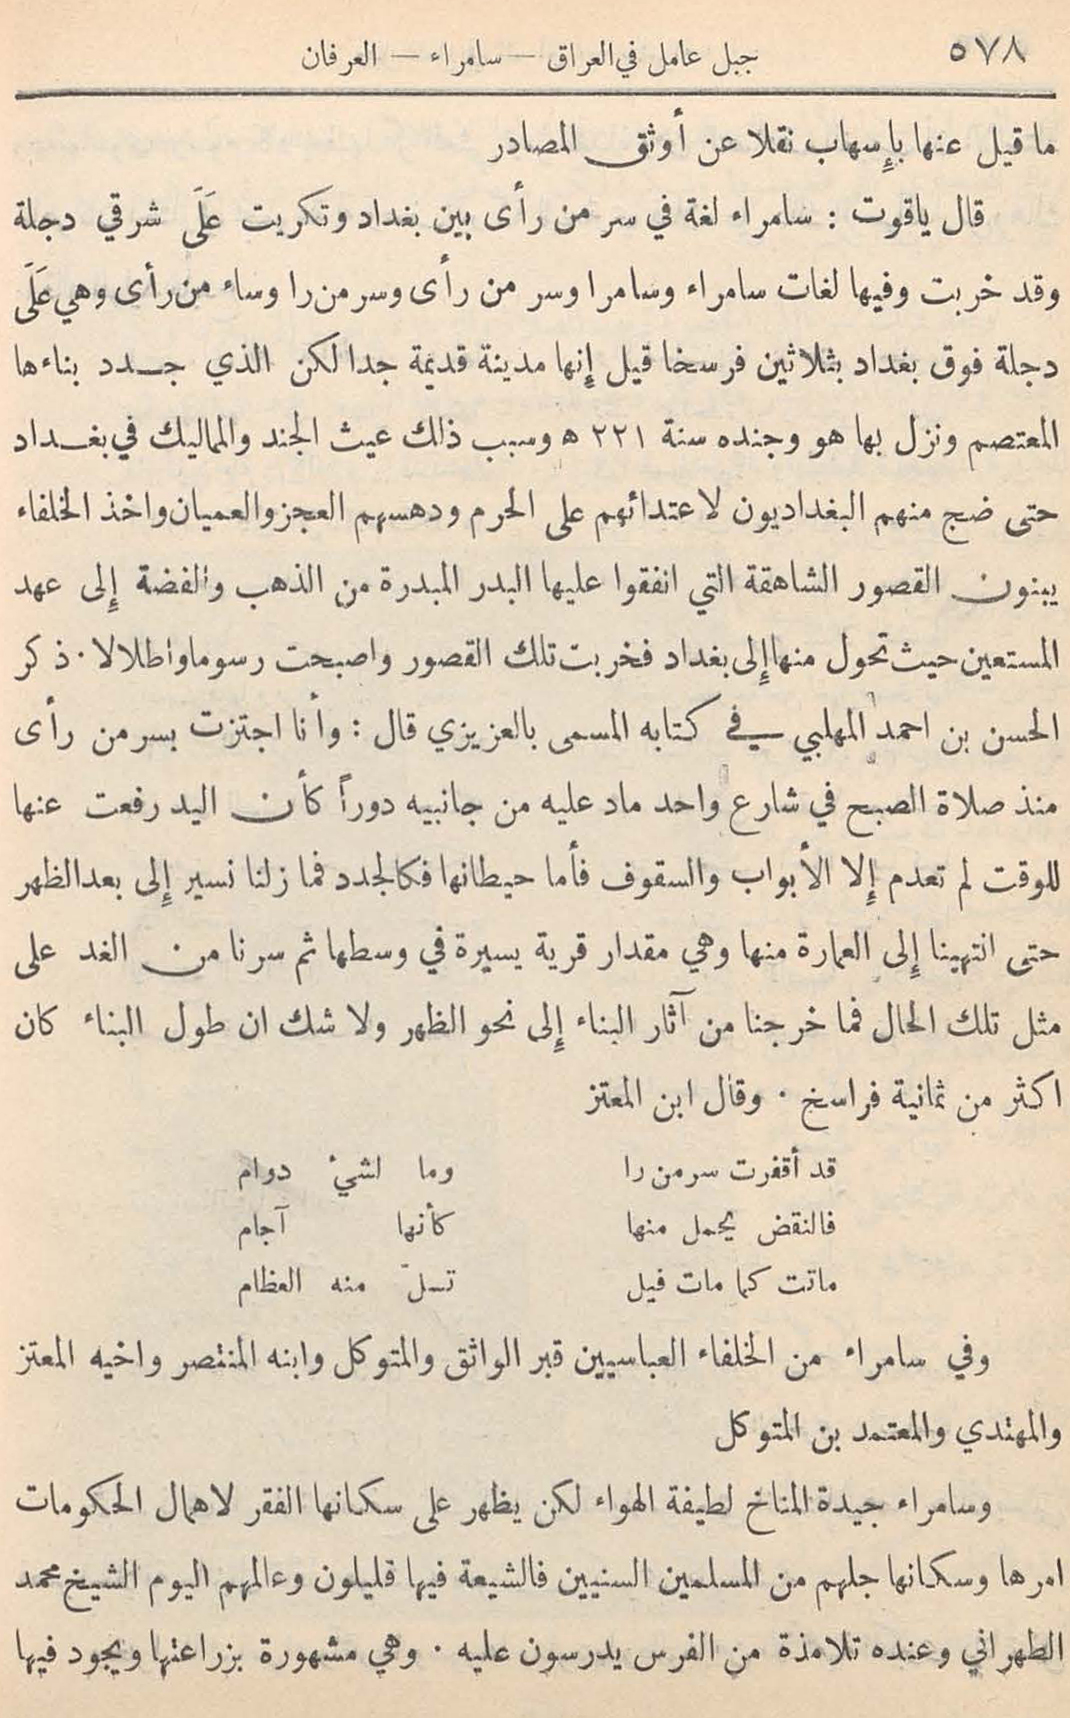 ٥٧٨
جبل عامل في العراق — سامراء — العرفان
ما قيل عنها بإسهاب نقلا عن أوثق المصادر
قال ياقوت : سامراء لغة في سر من رأى بين بغداد وتكريت عَلَى شرقي دجلة
وقد خربت وفيها لغات سامراء وسامرا وسر من رأى وسر من را وساء من رأى وهي عَلَى
دجلة فوق بغداد بثلاثين فرسخا قيل إنها مدينة قديمة جدا لكن الذي جدد بناءها
المعتصم ونزل بها هو وجنده سنة ٢٢١ ه وسبب ذلك عيث الجند والمماليك في بغداد
حتى ضج منهم البغداديون لاعتدائهم على الحرم ودهسهم العجز والعميان واخذ الخلفاء
يبنون القصور الشاهقة التي انفقوا عليها البدر المبدرة من الذهب والفضة إلى عهد
المستعين حيث تحول منها إلى بغداد فخربت تلك القصور واصبحت رسوما واطلالا . ذكر
الحسن بن احمد المهلبي في كتابه المسمى بالعزيزي قال : وأنا اجتزت بسر من رأى
منذ صلاة الصبح في شارع واحد ماد عليه من جانبيه دوراً كأن اليد رفعت عنها
للوقت لم تعدم إلا الأبواب والسقوف فأما حيطانها فكالجدد فما زلنا نسير إلى بعد الظهر
حتى انتهينا إلى العمارة منها وهي مقدار قرية يسيرة في وسطها ثم سرنا من الغد على
مثل تلك الحال فما خرجنا من آثار البناء إلى نحو الظهر ولا شك ان طول البناء كان
اكثر من ثمانية فراسخ . وقال ابن المعتز
قد أقفرت سر من را وما لشيء دوام
فالنقض يحمل منها كأنها آجام
ماتت كما مات فيل تسلّ منه العظام
وفي سامراء من الخلفاء العباسيين قبر الواثق والمتوكل وابنه المنتصر واخيه المعتز
والمهتدي والمعتمد بن المتوكل
وسامراء جيدة المناخ لطيفة الهواء لكن يظهر على سكانها الفقر لاهمال الحكومات
امرها وسكانها جلهم من المسلمين السنيين فالشيعة فيها قليلون وعالمهم اليوم الشيخ محمد
الطهراني وعنده تلامذة من الفرس يدرسون عليه . وهي مشهورة بزراعتها ويجود فيها